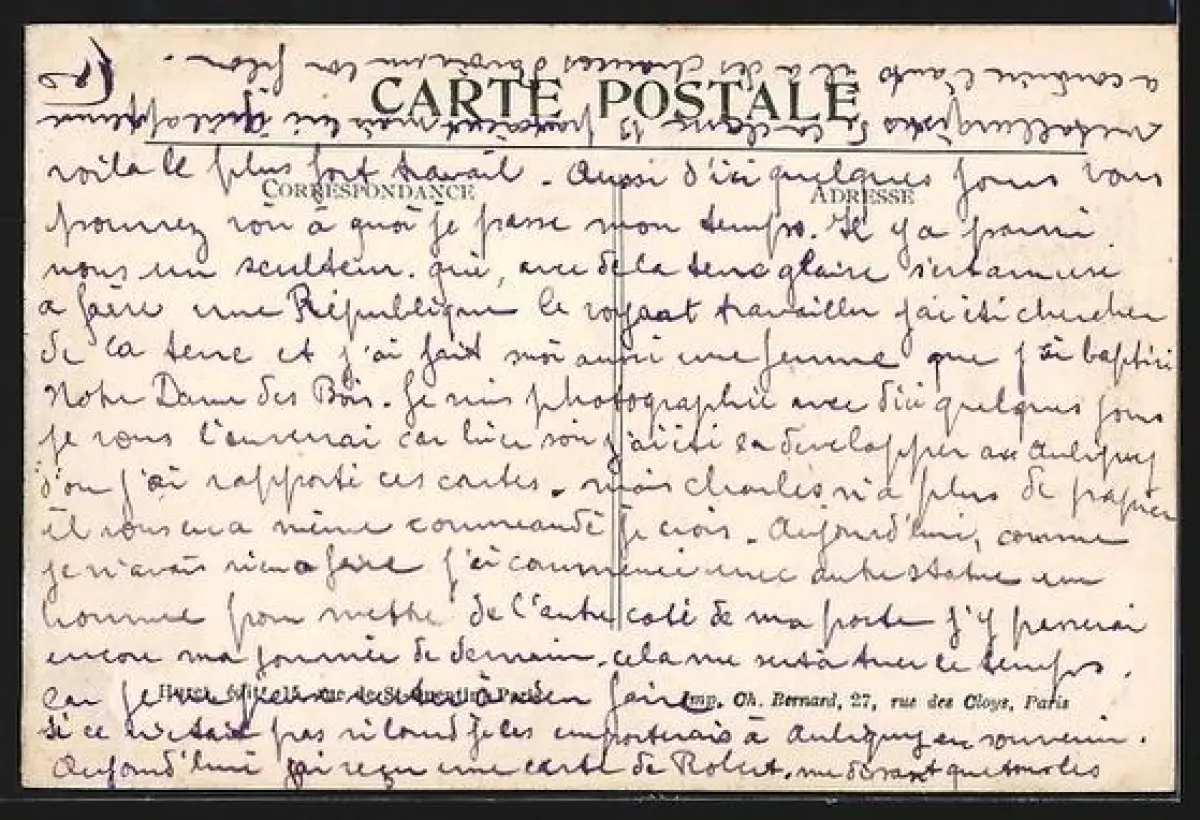 CARTE POSTALE
CORRESPONDANCE
ADRESSE
voila le plus fort travail. Aussi d'ici quelques jours vous
pourrez voir à quoi je passe mon temps. Il y a parmi
nous un sculteur. qui, avec de la terre glaise s'est amusé
a faire une République le voyant travailler j'ai été chercher
de la terre et j'ai fait moi aussi une femme que j'ai baptisé
Notre Dame des Bois. Je suis photographié avec d'ici quelques jours
je vous l'enverrai car hier soir j'ai été la developper au Aubigny
d'ou j'ai rapporté ces cartes. mais Charles n'a plus de papier
il vous en a même commandé je crois. Aujourd'hui, comme
je n'avais rien a faire j'ai commencé une autre statue un
homme pour mettre de l'autre coté de ma porte j'y passerai
encore ma journée de demain. cela me sert à tuer le temps.
car je ne peux rester à rien faire
Imp. Ch. Bernard, 27, rue des Cloys, Paris
si ce n'était pas si lourd je les emporterais à Aubigny en souvenir.
Aujourd'hui j'ai reçu une carte de Robert. me disant que tous les
métallurgistes de la classe 13 mais lui
a conduire l'auto il a des chances d'avoir un bon filon.